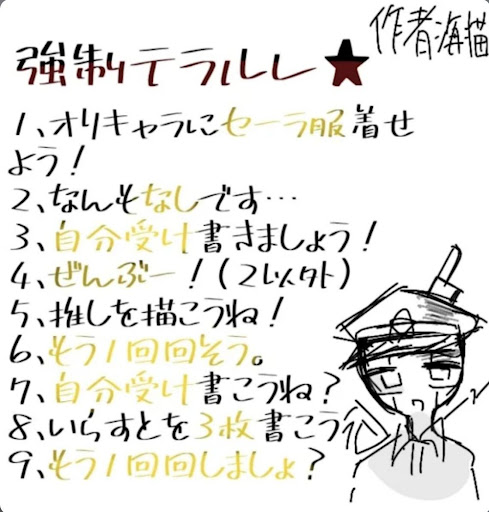 作者海猫
強制テラルレ★
1、オリキャラにセーラ服着せ
よう！
2、なんもなしです…
3、自分受け書きましょう！
4、ぜんぶー！(2以外)
5、推しを描こうね！
6、もう1回回そう。
7、自分受け書こうね？
8、いらすとを3枚書こう
9、もう1回回しましょ？